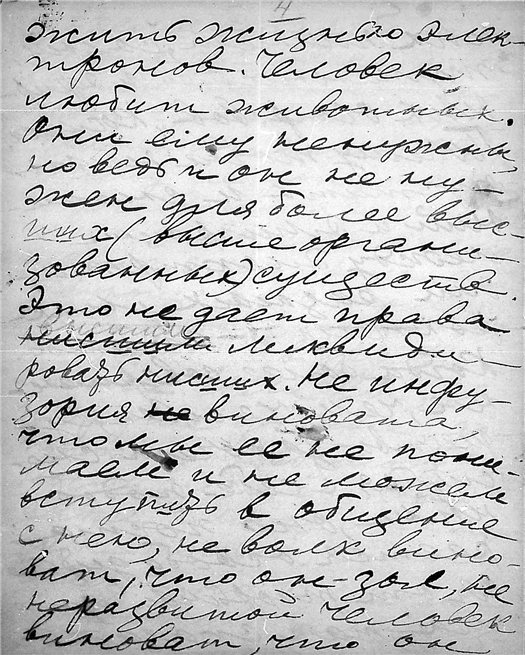 4
жить жизнью элек-
тронов. Человек
любит животных.
Они ему ненужны,
но ведь и он не ну-
жен для более выс-
ших (выше органи-
зованных) существ.
Это не дает права
высшим
ликвиди-
ровать нисших. Не инфу-
зория не виновата,
что мы ее не пони-
маем и не можем
вступать в общение
с нею, не волк вино-
ват, что он зол, не
неразвитой человек
виноват, что он